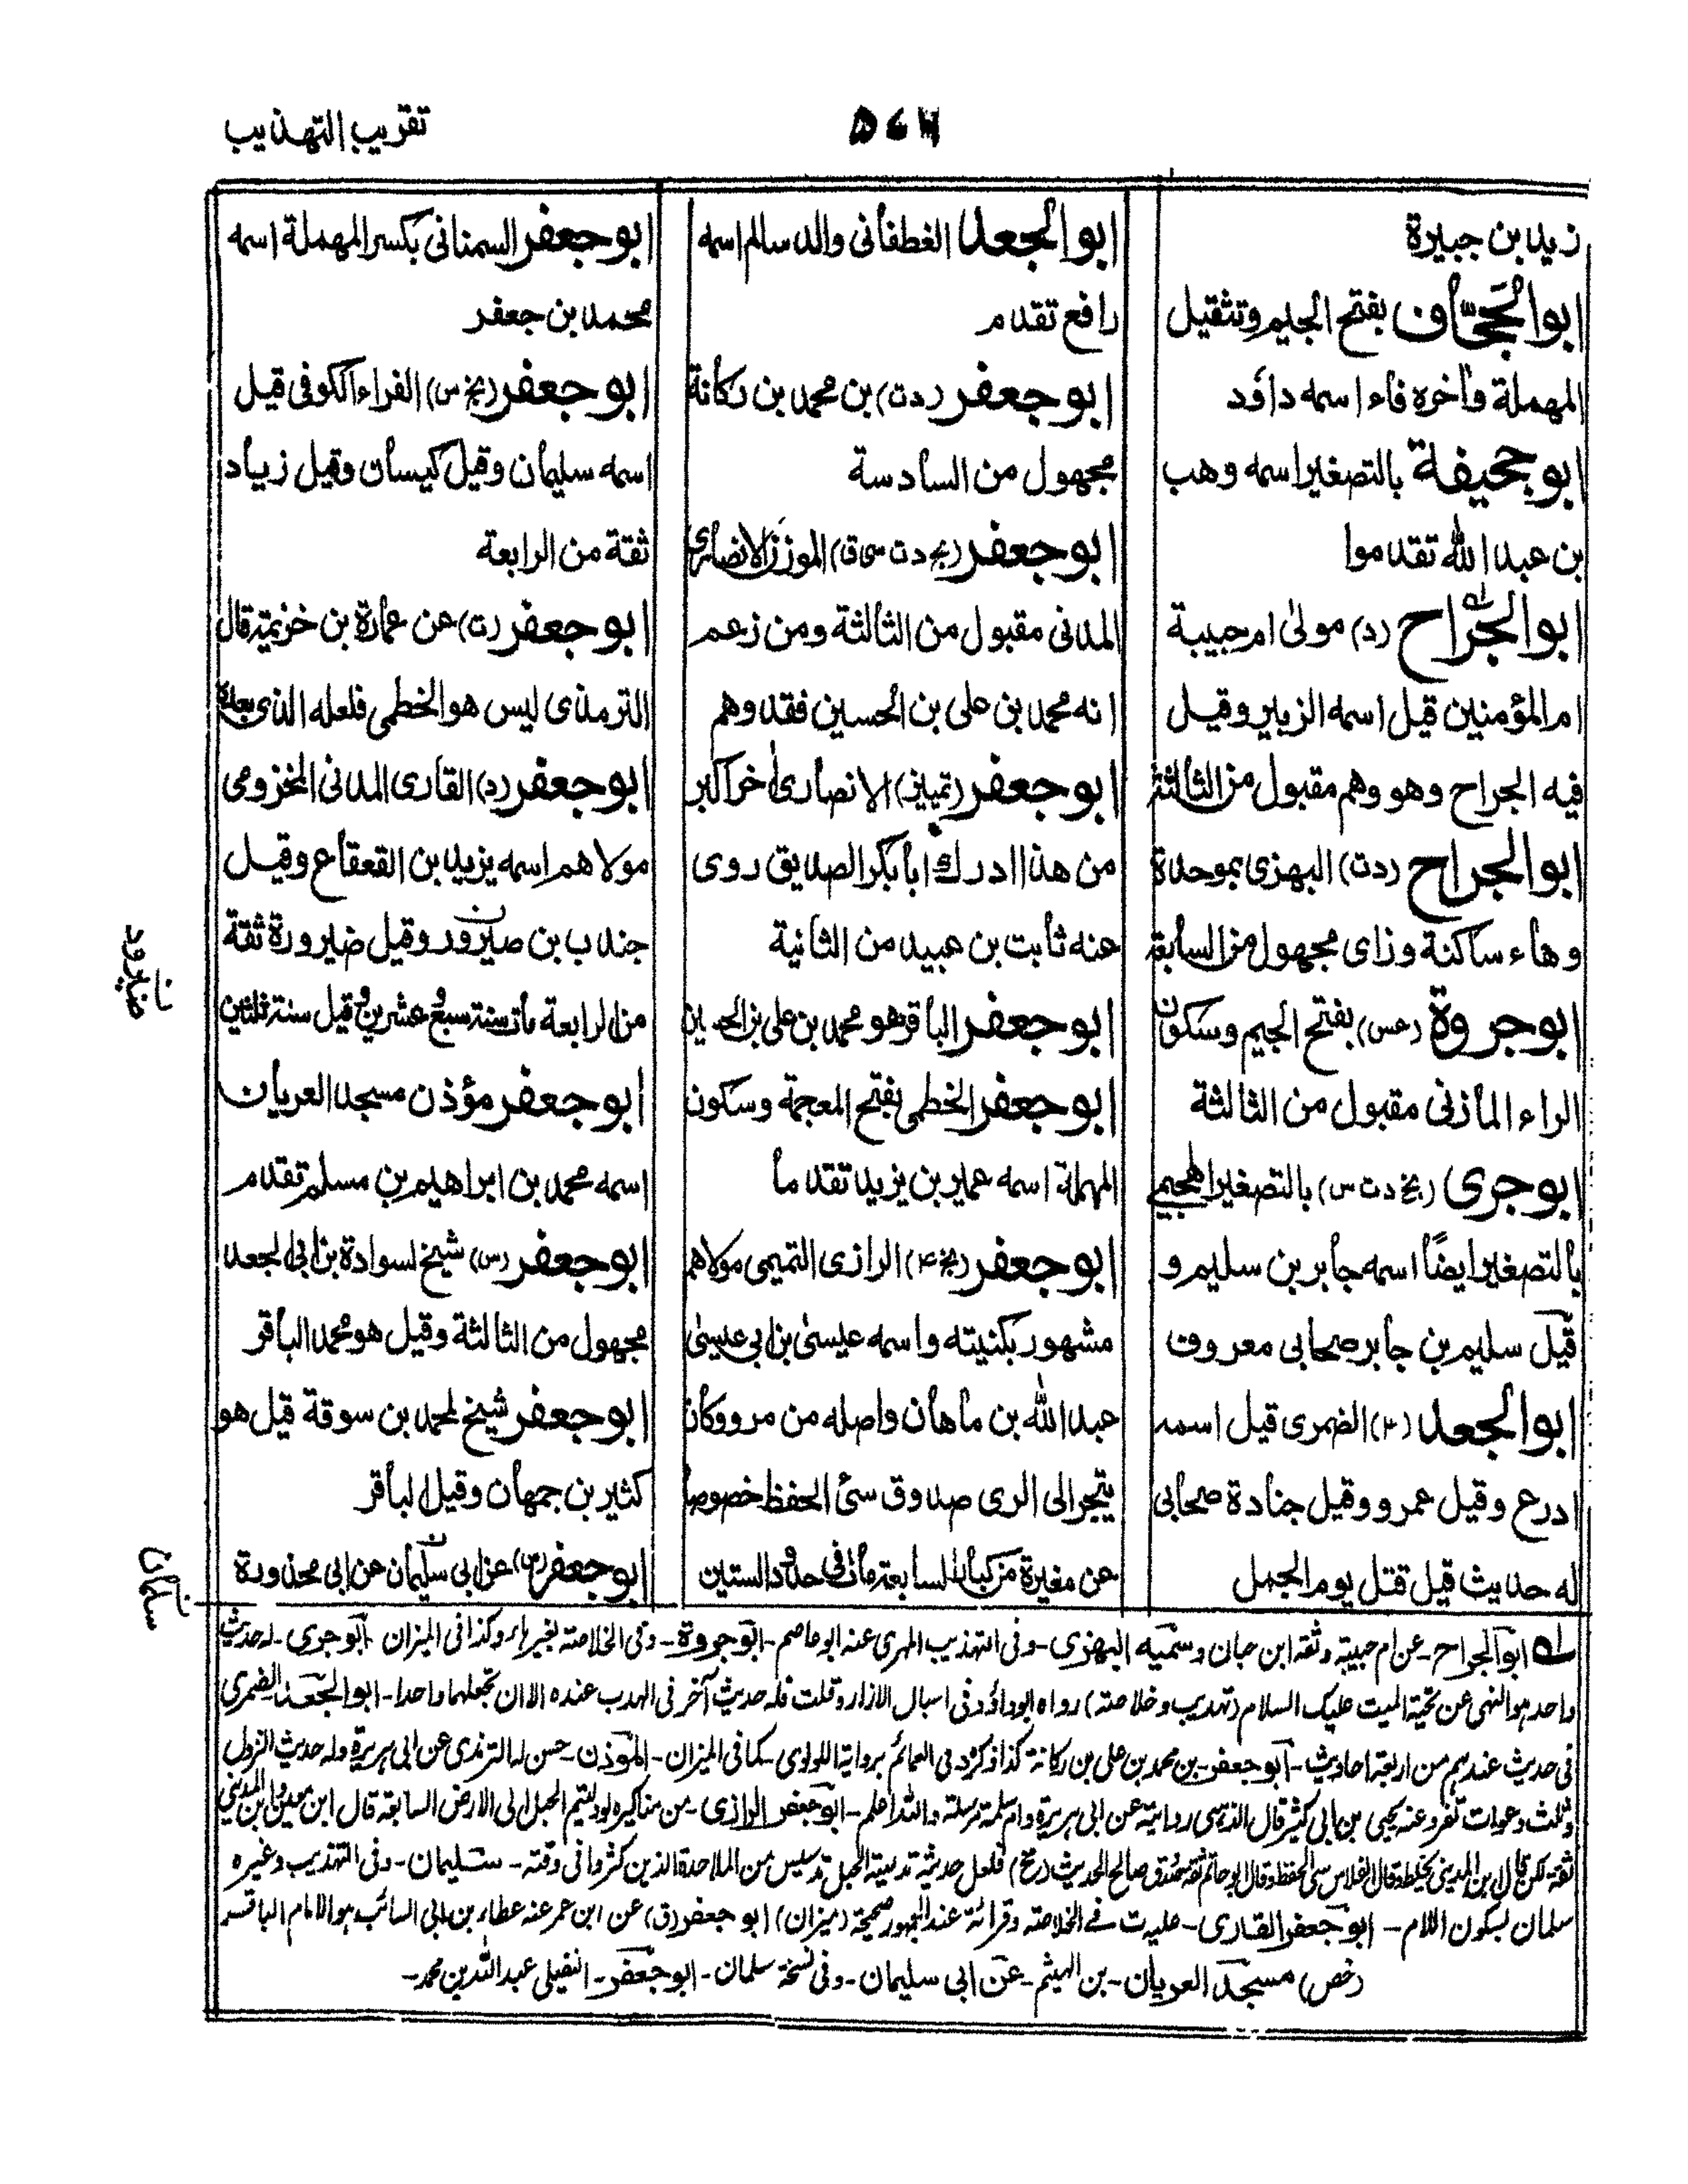 تقريب التهذيب
زيد بن جبيرة
ابو الجَحّاف بفتح الجيم وتثقيل
المهملة وآخره فاء اسمه داؤد
ابو جحيفة بالتصغير اسمه وهب
بن عبد الله تقدموا
ابو الجراح (د) مولى ام حبيبة
ام المؤمنين قيل اسمه الزبير وقيل
فيه الجراح وهو وهم مقبول من الثالثة
ابو الجراح (دت) البهزى بموحدة
وهاء ساكنة وزاى مجهول من السابقة
ابو جروة (عس) بفتح الجيم وسكون
الراء المازنى مقبول من الثالثة
ابو جرى (بخ دت س) بالتصغير الهجيمى
بالتصغير ايضًا اسمه جابر بن سليم و
قيل سليم بن جابر صحابى معروف
ابو الجعد (٤) الضمرى قيل اسمه
ادرع وقيل عمرو وقيل جنادة صحابى
له حديث قيل قتل يوم الجمل
ابو الجعد الغطفانى والد سالم اسمه
رافع تقدم
ابو جعفر (دت) بن محمد بن ركانة
مجهول من السادسة
ابو جعفر (بخ دت سى ق) الموذن الانصارى
المدنى مقبول من الثالثة ومن زعم
انه محمد بن على بن الحسين فقد وهم
ابو جعفر (تمييز) الانصارى اخر اكبر
من هذا ادرك ابا بكر الصديق روى
عنه ثابت بن عبيد من الثانية
ابو جعفر الباقر هو محمد بن على بن الحسين
ابو جعفر الخطمى بفتح المعجمة وسكون
المهملة اسمه عمير بن يزيد تقدما
ابو جعفر (بخ ٤) الرازى التميمى مولاهم
مشهور بكنيته واسمه عيسى بن ابى عيسى
عبد الله بن ماهان واصله من مرو وكان
يتجر الى الرى صدوق سئ الحفظ خصوصا
عن مغيرة من كبار السابعة مات فى حدود الستين
ابو جعفر السمنانى بكسر المهملة اسمه
محمد بن جعفر
ابو جعفر (بخ س) الفراء الكوفى قيل
اسمه سليمان وقيل كيسان وقيل زياد
ثقة من الرابعة
ابو جعفر (ت) عن عمارة بن خزيمة قال
الترمذى ليس هو الخطمى فلعله الذى بعده
ابو جعفر (د) القارى المدنى المخزومى
مولاهم اسمه يزيد بن القعقاع وقيل
جندب بن صيرور وقيل ضيرورة ثقة
من الرابعة مات سنة سبع وعشرين وقيل سنة ثلثين
ابو جعفر مؤذن مسجد العريان
اسمه محمد بن ابراهيم بن مسلم تقدم
ابو جعفر (س) شيخ لسوادة بن ابى الجعد
مجهول من الثالثة وقيل هو محمد الباقر
ابو جعفر شيخ لمحمد بن سوقة قيل هو
كثير بن جمهان وقيل الباقر
ابو جعفر (س) عن ابى سليمان عن ابى محذورة
سلمان
ابو الجراح - عن ام حبيبة وثقه ابن حبان وسميه البهزى - وفى التهذيب المهرى عنه ابو عاصم - ابو جروة - وفى الخلاصة بغير هاء وكذا فى الميزان ابو جرى - له حديث
واحد هو النهى عن تحية الميت عليك السلام (تهذيب وخلاصة) رواه ابو داؤد فى اسبال الازار وقلت فله حديث آخر فى الهدب عنده الا ان تجعلهما واحدا - ابو الجعد الضمرى
فى حديث عندهم من اربعة احاديث - ابو جعفر - بن محمد بن على بن ركانة كذا ذكر د فى العمائم برواية اللولوى - كما فى الميزان - الموذن - حسن له الترمذى عن ابى هريرة وله حديث النزول
وثلث دعوات تفرد عنه يحيى بن ابى كثير قال الذهبى روايته عن ابى هريرة وام سلمة مرسلة والله اعلم - ابو جعفر الرازى - من مناكيره لو دليتم الحبل الى الارض السابعة قال ابن معين وابن المدينى
ثقة لكن قال ابن المدينى يخلط وقال الفلاس سئ الحفظ وقال ابو حاتم ثقة صدوق صالح الحديث فلعل حديثه تدلية الحبل تدسيس من الملاحدة الذين كثروا فى وقته - سليمان - وفى التهذيب وغيره
سلمان بسكون اللام - ابو جعفر القارى - فى الخلاصة وقرائة عند الجمهور صحيحة (ميزان) ابو جعفر (ق) عن ابن عمر عنه عطاء بن ابى السائب هو الامام الباقر
مسجد العريان - بن الهيثم - عن ابى سليمان - وفى نسخة سلمان - ابو جعفر - النفيلى عبد الله بن محمد -